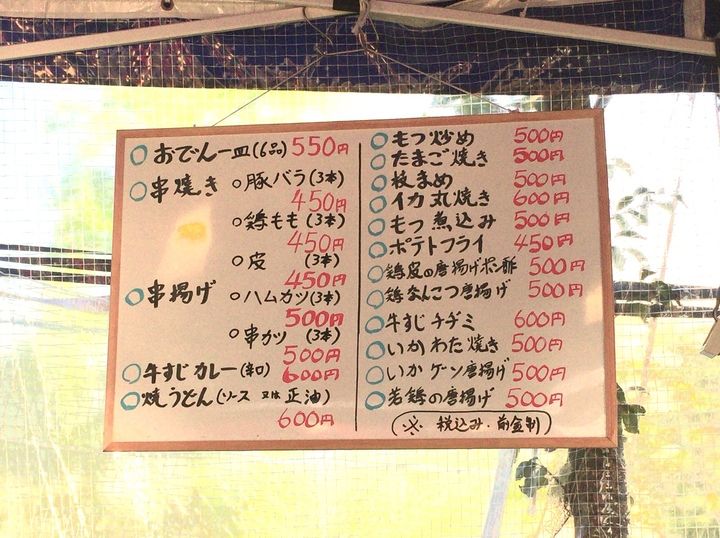 ○おでん一皿(6品) 550円
○串焼き ○豚バラ(3本)
450円
○鶏もも(3本)
450円
○皮 (3本)
450円
○串揚げ ○ハムカツ(3本)
500円
○串カツ (3本)
500円
○牛すじカレー(辛口) 600円
○焼うどん(ソース 又は 正油)
600円
○もつ炒め 500円
○たまご焼き 500円
○枝まめ 500円
○イカ丸焼き 600円
○もつ煮込み 500円
○ポテトフライ 450円
○鶏皮の唐揚げポン酢 500円
○鶏なんこつ唐揚げ 500円
○牛すじチヂミ 600円
○いかわた焼き 500円
○いかゲソ唐揚げ 500円
○若鶏の唐揚げ 500円
(※ 税込み・前金制)